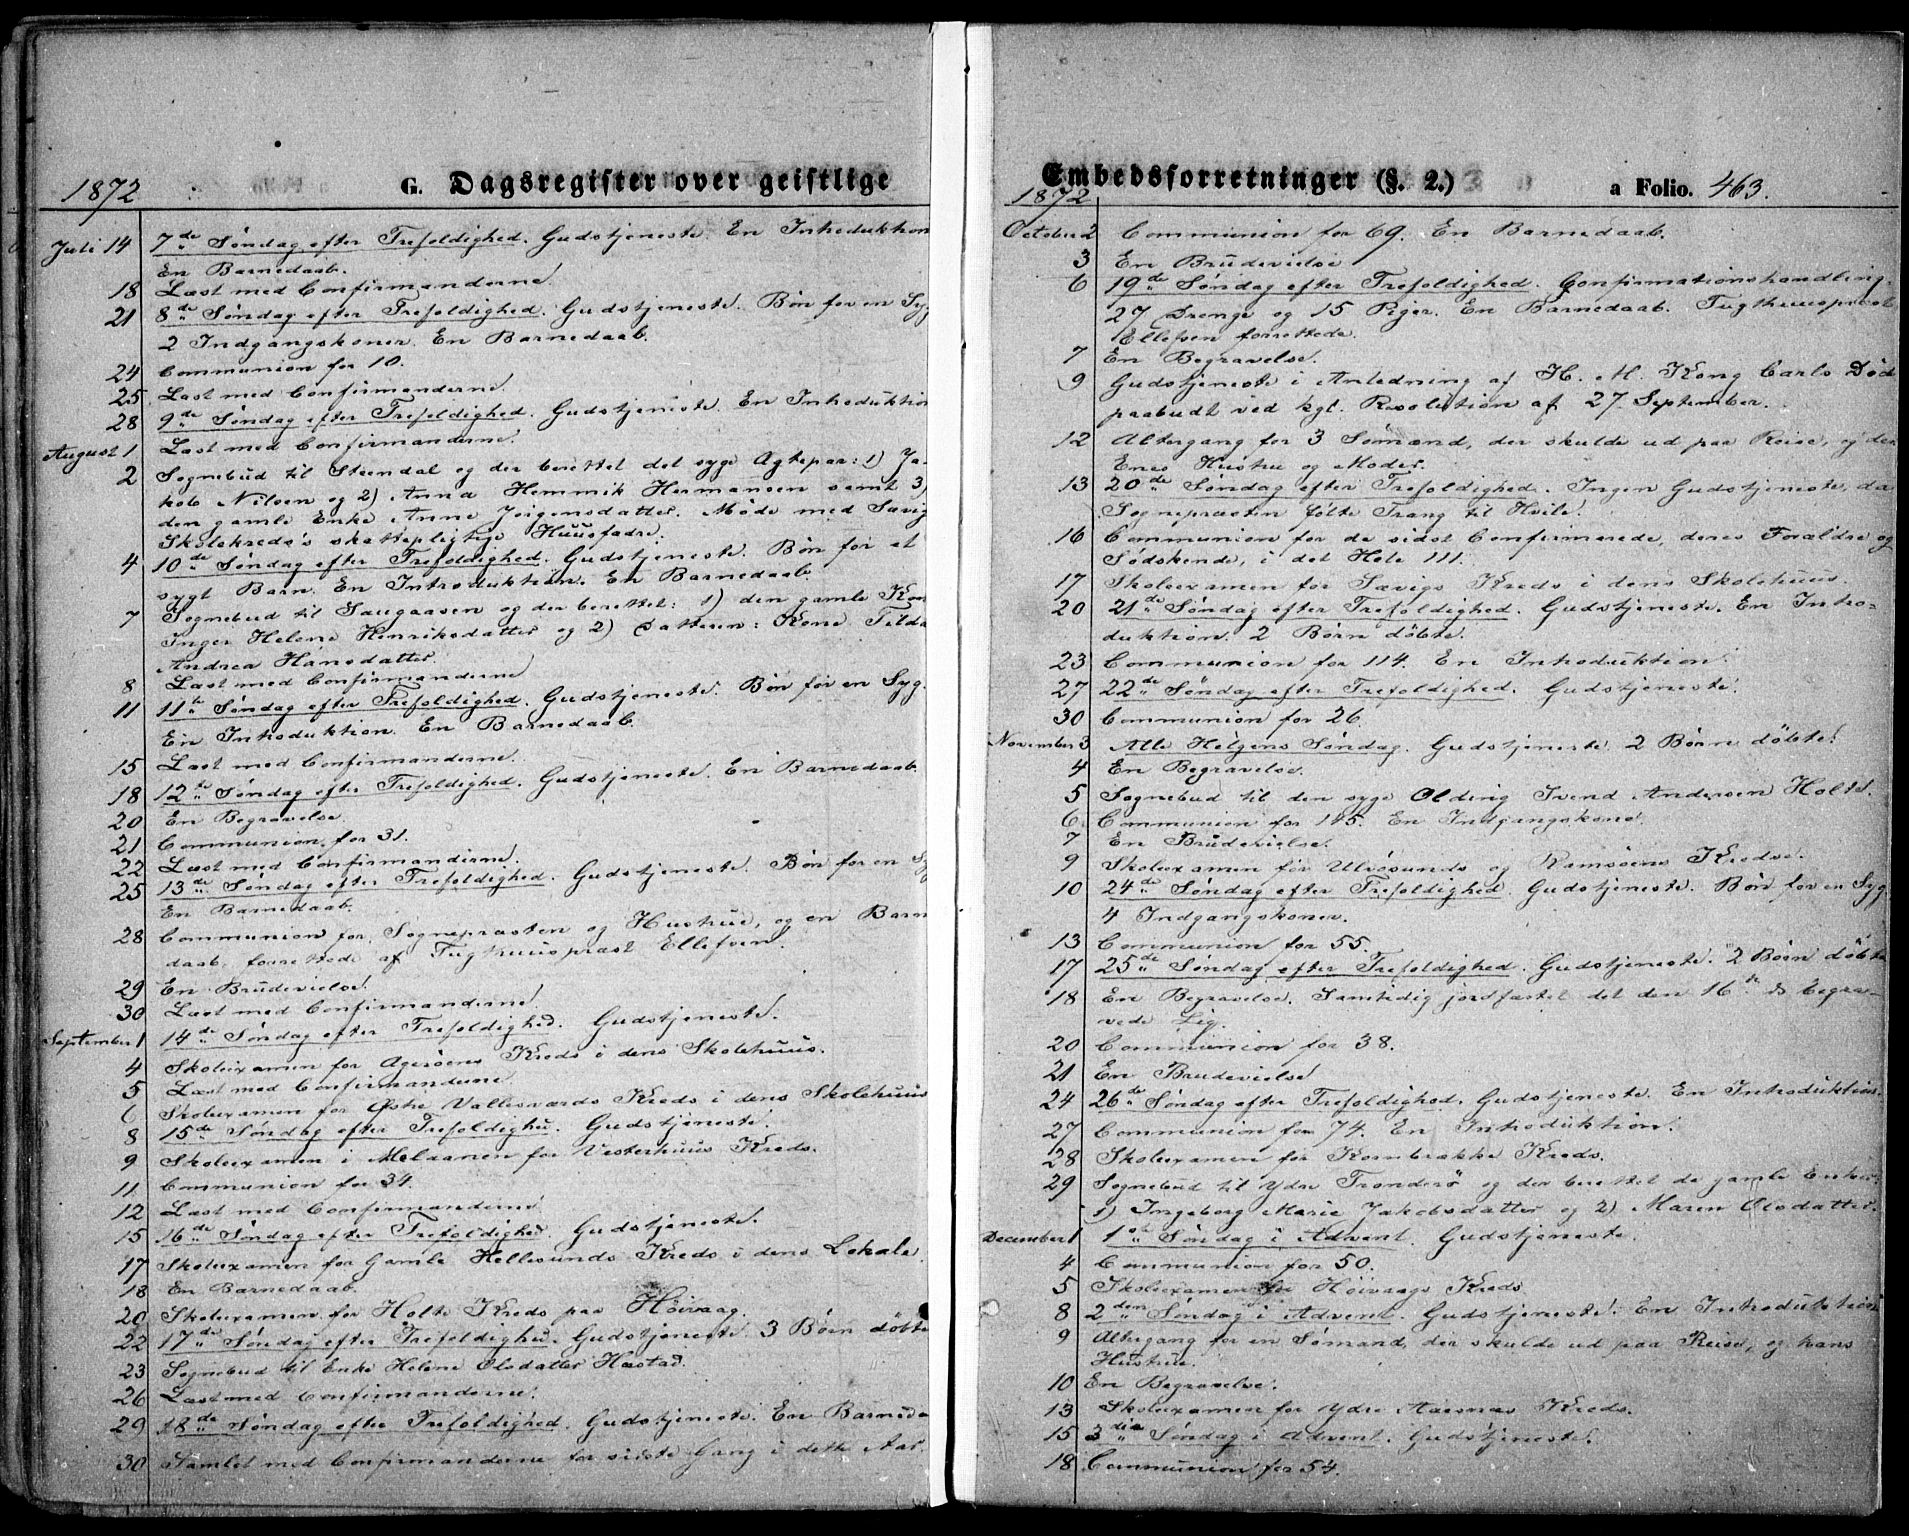 1872
G. Dagsregister over geistlige
Juli 14 7de Søndag efter Trefoldighed. Gudstjeneste. En Introduktion
En Barnedaab.
18 Læst med Confirmanderne.
21 8de Søndag efter Trefoldighed. Gudstjeneste. Bøn for en Syg
2 Indgangskoner. En Barnedaab.
24 Communion for 10.
25 Læst med Confirmanderne.
28 9de Søndag efter Trefoldighed. Gudstjeneste. En Introduktion
August 1 Læst med Confirmanderne.
2 Sognebud til Steendal og der berettet det syge Ægtepar: 1) Ja-
kob Nilsen og 2) Anna Hemmik Hermansen samt 3)
den gamle Enke Anne Jørgensdatter. Møde med Sævig
Skolekreds's skattepligtige Huusfadre.
4 10de Søndag efter Trefoldighed. Gudstjeneste. Bøn for et
sygt Barn. En Introduktion. En Barnedaab.
7 Sognebud til Saugaasen og der berettet: 1) den gamle Kone
Inger Helene Henriksdatter og 2) Datteren: Kone Tilda
Andrea Hansdatter.
8 Læst med Confirmanderne
11 11te Søndag efter Trefoldighed. Gudstjeneste. Bøn for en Syg.
En Introduktion. En Barnedaab.
15 Læst med Confirmanderne.
18 12te Søndag efter Trefoldighed. Gudstjeneste. En Barnedaab.
20 En Begravelse.
21 Communion for 31.
22 Læst med Confirmanderne.
25 13de Søndag efter Trefoldighed. Gudstjeneste. Bøn for en Syg
En Barnedaab.
28 Communion for Sognepræsten og Hustrue, og en Barne
daab, forrettede af Tugthuuspræst Ellefsen.
29 En Brudevielse.
30 Læst med Confirmanderne.
September 1 14de Søndag efter Trefoldighed. Gudstjeneste.
4 Skoleexamen for Agerøens Kreds i dens Skolehuus.
5 Læst med Confirmanderne
6 Skoleexamen for Østre Vallesværds Kreds i dens Skolehuus
8 15de Søndag efter Trefoldighed. Gudstjeneste.
9 Skoleexamen i Melaamen for Vesterhuus Kreds.
11 Communion for 34.
12 Læst med Confirmanderne
15 16de Søndag efter Trefoldighed. Gudstjeneste.
17 Skoleexamen for Gamle Hellesunds Kreds i dens Lokale.
18 En Barnedaab.
20 Skoleexamen for Holte Kreds paa Høivaag.
22 17de Søndag efter Trefoldighed. Gudstjeneste. 3 Børn døbte
23 Sognebud til Enke Helene Olsdatter Hæstad.
26 Læst med Confirmanderne.
29 18de Søndag efter Trefoldighed. Gudstjeneste. En Barneda
30 Samlet med Confirmanderne for sidste Gang i dette Aar.
Embedsforretninger (§. 2.)
a Folio. 463.
1872
October 2 Communion for 69. En Barnedaab.
3 En Brudevielse
6 19de Søndag efter Trefoldighed. Confirmationshandling.
27 Drenge og 15 Piger. En Barnedaab. Tugthuuspræst
Ellefsen forrettede.
7 En Begravelse.
9 Gudstjeneste i Anledning af H. M. Kong Carls Død
paabudt ved kgl. Resolution af 27 September.
12 Altergang for 3 Sømænd, der skulde ud paa Reise, og den
Enes Hustru og Moder.
13 20de Søndag efter Trefoldighed. Ingen Gudstjeneste, da
Sognepræsten følte Trang til Hvile.
16 Communion for de sidst Confirmerede, deres Forældre og
Sødskende, i det Hele 111.
17 Skoleexamen for Sævigs Kreds i dens Skolehuus.
20 21de Søndag efter Trefoldighed. Gudstjeneste. En Intro-
duktion. 2 Børn døbte.
23 Communion for 114. En Introduktion.
27 22de Søndag efter Trefoldighed. Gudstjeneste.
30 Communion for 26.
November 3 Alle Helgens Søndag. Gudstjeneste. 2 Børn døbte.
4 En Begravelse.
5 Sognebud til den syge Olding Svend Andersen Holte.
6 Communion for 145. En Indgangskone.
7 En Brudevielse.
9 Skoleexamen for Ulvøsunds og Ramsøens Kredse.
10 24de Søndag efter Trefoldighed. Gudstjeneste. Bøn for en Syg
4 Indgangskoner.
13 Communion for 55.
17 25de Søndag efter Trefoldighed. Gudstjeneste. 2 Børn døbte
18 En Begravelse. Samtidig jordfæstet det den 16de ds begra-
vede Lig.
20 Communion for 38.
21 En Brudevielse
24 26de Søndag efter Trefoldighed. Gudstjeneste. En Introduktion.
27 Communion for 74. En Introduktion.
28 Skoleexamen for Kornbrække Kreds.
29 Sognebud til Ydre Tronderø og der berettet de gamle Enker:
1) Ingeborg Marie Jakobsdatter og 2) Maren Olsdatter.
December 1 1ste Søndag i Advent. Gudstjeneste.
4 Communion for 50.
5 Skoleexamen for Høivaags Kreds
8 2den Søndag i Advent. Gudstjeneste. En Introduktion
9 Altergang for en Sømand, der skulde ud paa Reise, og hans
Hustrue.
10 En Begravelse.
13 Skoleexamen for Ydre Aasnæs Kreds.
15 3die Søndag i Advent. Gudstjeneste.
18 Communion for 54.